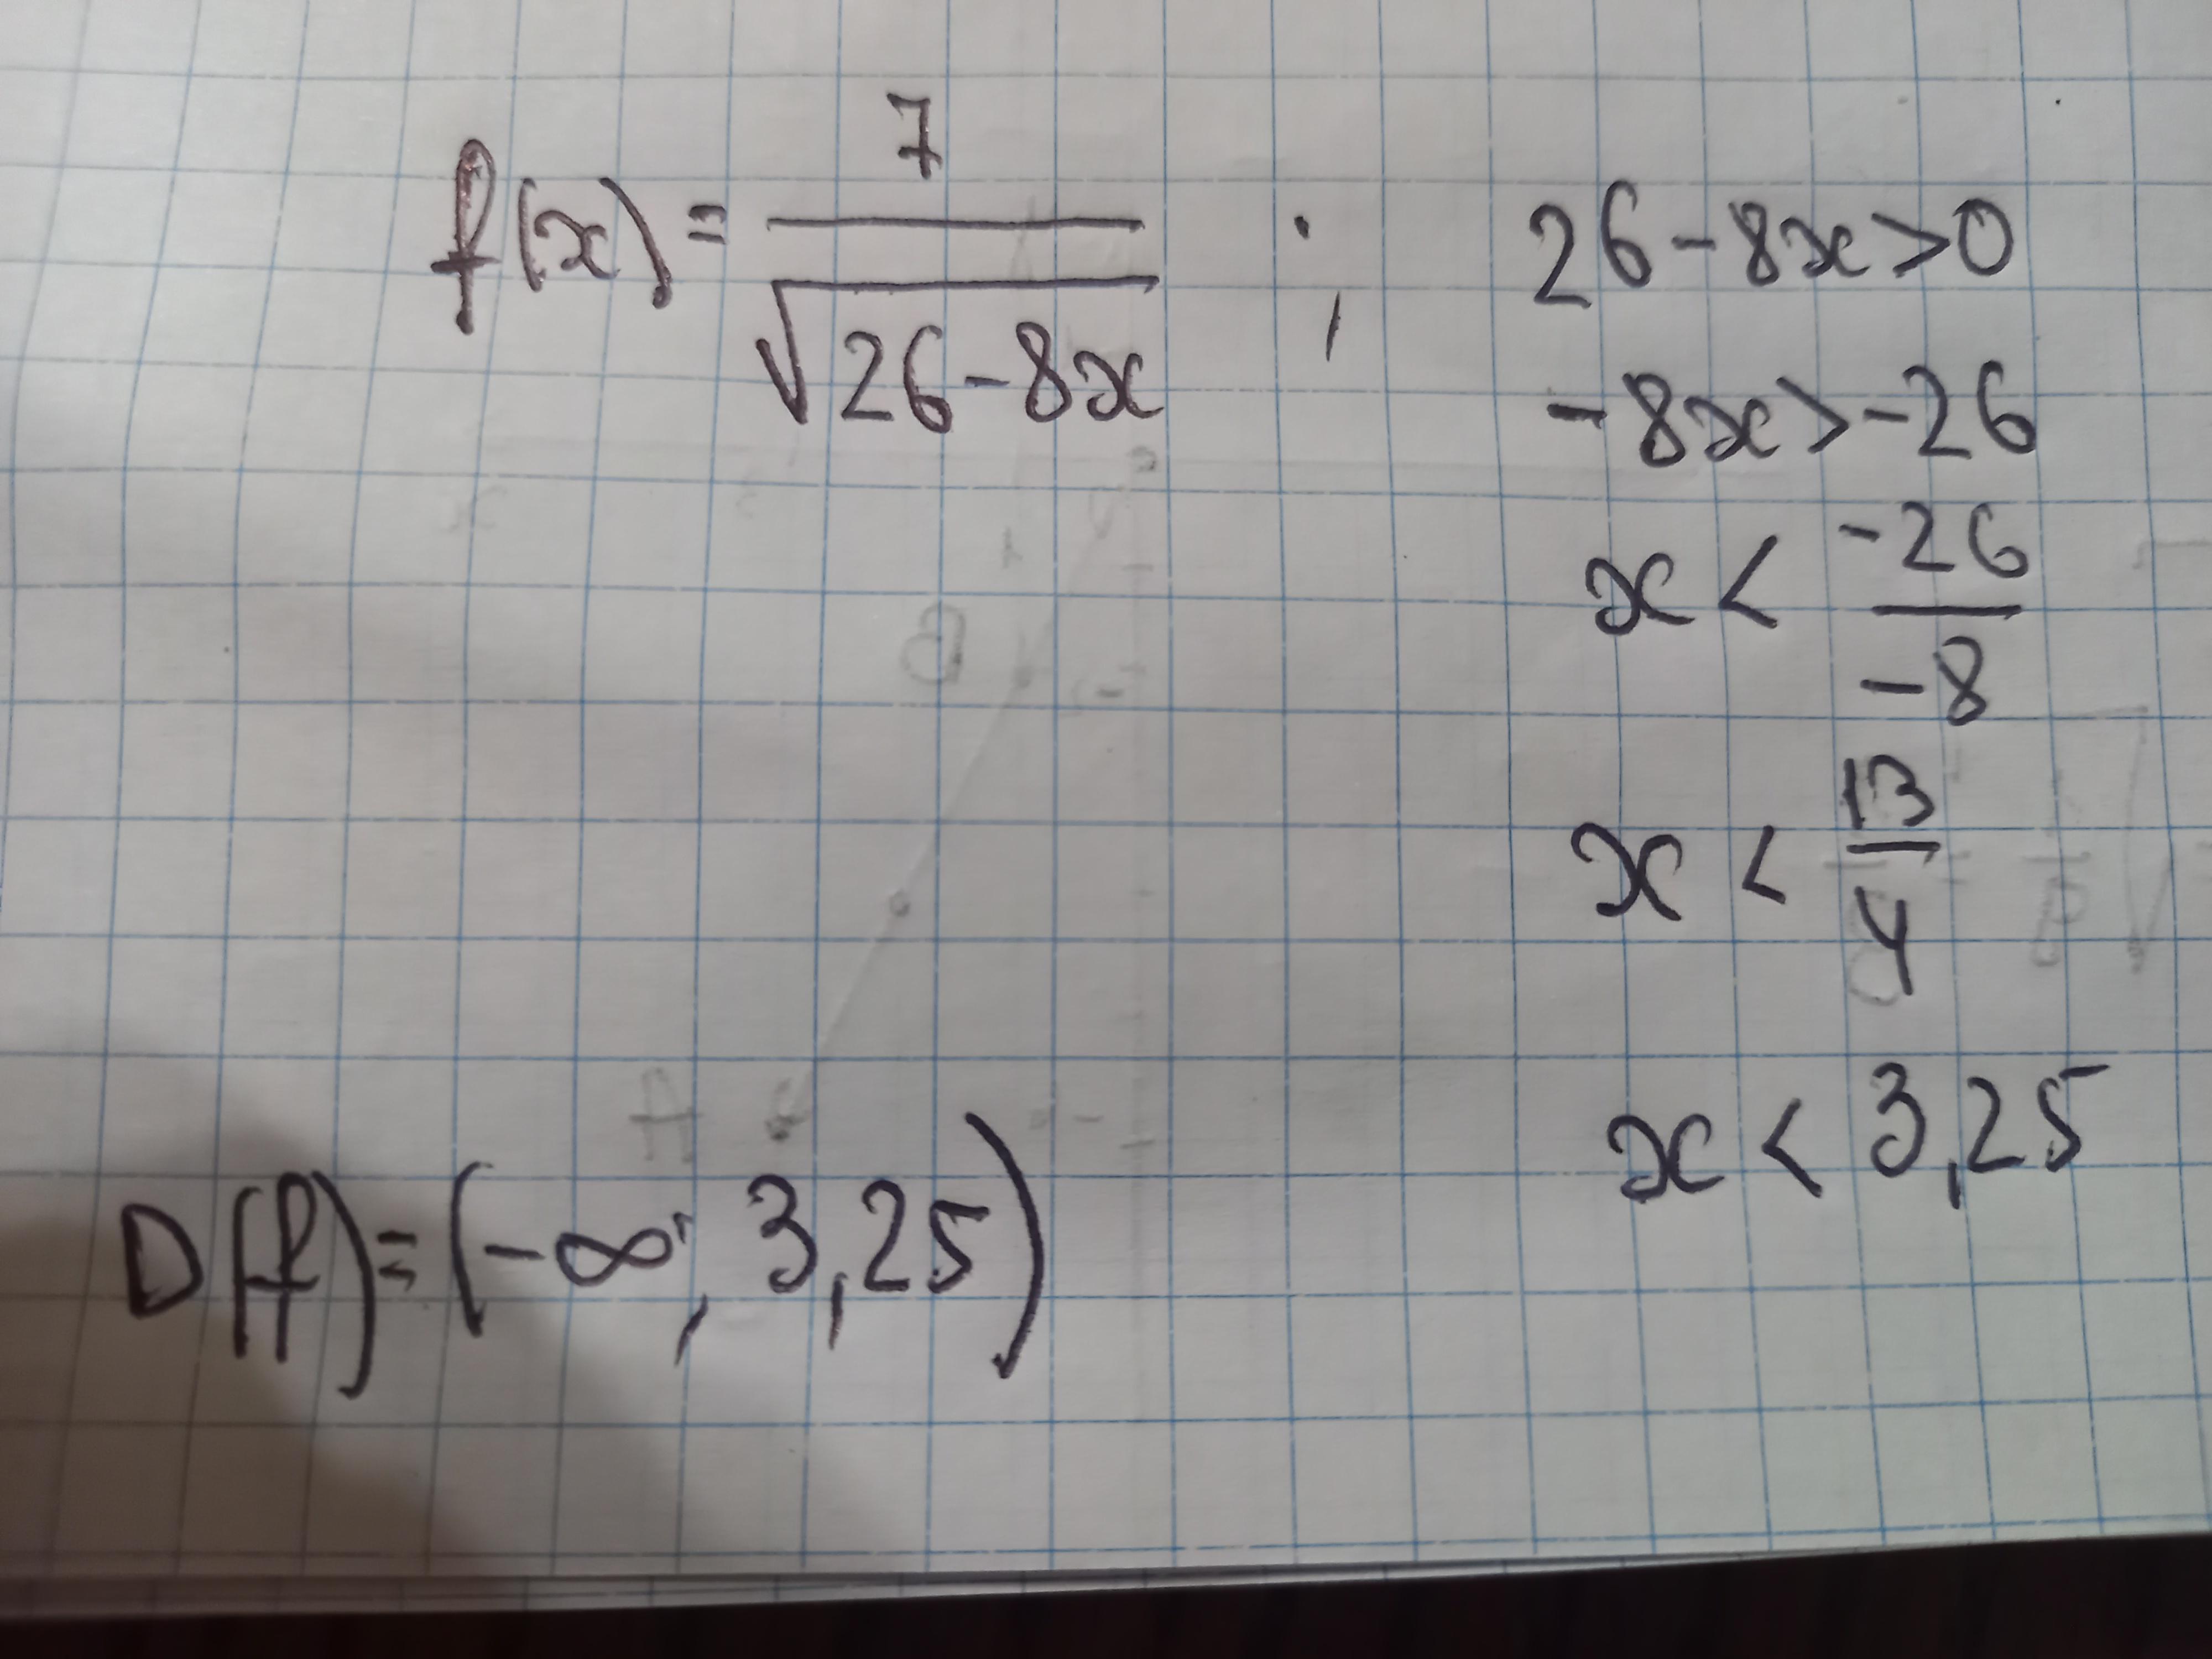 f(x) = 7/√(26-8x) ;
26-8x>0
-8x>-26
x < -26/-8
x < 13/4
x < 3,25
D(f)=(-∞, 3,25)